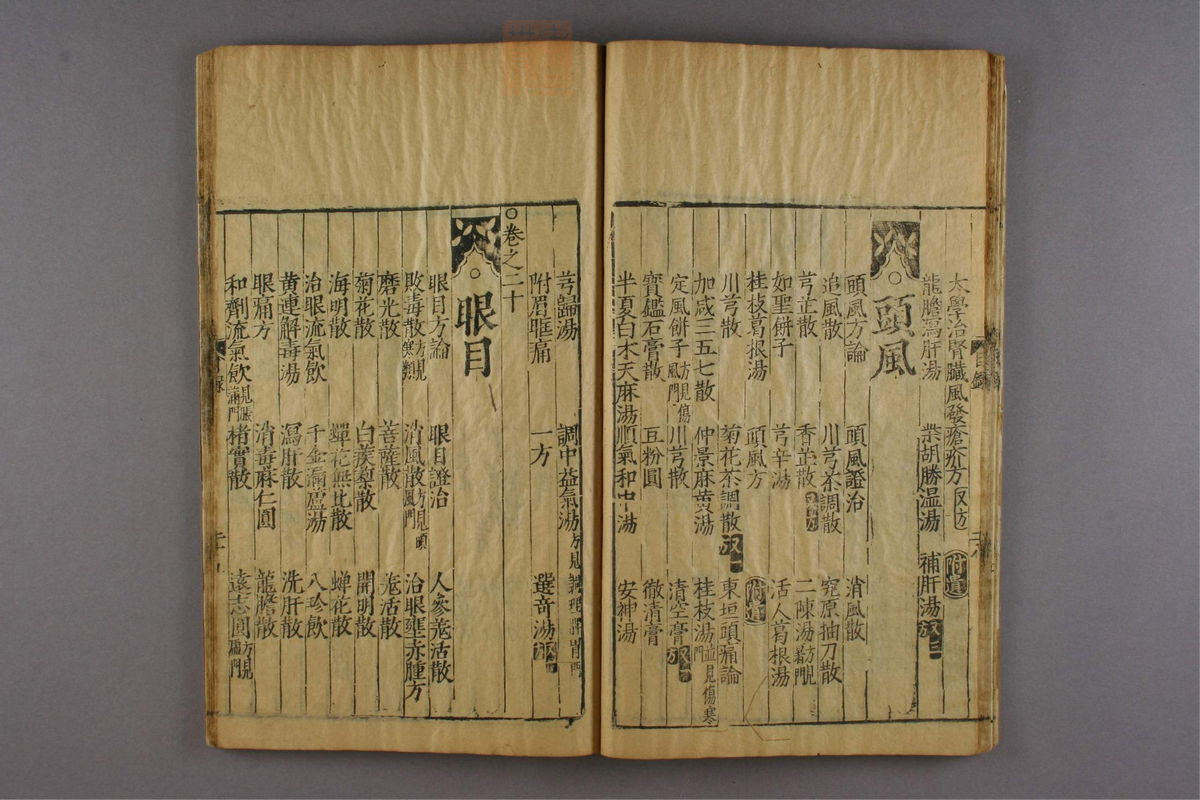 太學治腎臟風發瘡疥方 又方 附遺
龍膽瀉肝湯 柴胡勝温湯 補肝湯 三
頭風
頭風方論 頭風證治 消風散
追風散 川芎茶調散 究原抽刀散
芎芷散 香芷散 二陳湯 方見暑門
如聖餅子 芎辛湯 活人葛根湯
桂枝葛根湯 頭風方 附遺
川芎散 菊花茶調散 東垣頭痛論
加减三五七散 仲景麻黄湯 桂枝湯 並見傷寒門
定風餅子 方見傷風門 川芎散 清空膏
寳鑑石膏散 瓦粉圓 徹清膏
半夏白术天麻湯 順氣和中湯 安神湯
芎歸湯 調中益氣湯 方見 脾胃門
附眉眶痛 一方 選奇湯
卷之二十
眼目
眼目方論 眼目證治 人參羌活散
敗毒散 方見寒類 消風散 方見頭風門 治眼壅赤腫方
磨光散 菩薩散 羌活散
菊花散 白蒺藜散 開明散
海明散 蟬花無比散 蟬花散
治眼流氣飲 千金漏蘆湯 八珍飲
黄連解毒湯 瀉肝散 洗肝散
眼痛方 消毒麻仁圓 龍膽散
和劑流氣飲 見脹滿門 楮實散 遠志圓 方見 門
目錄